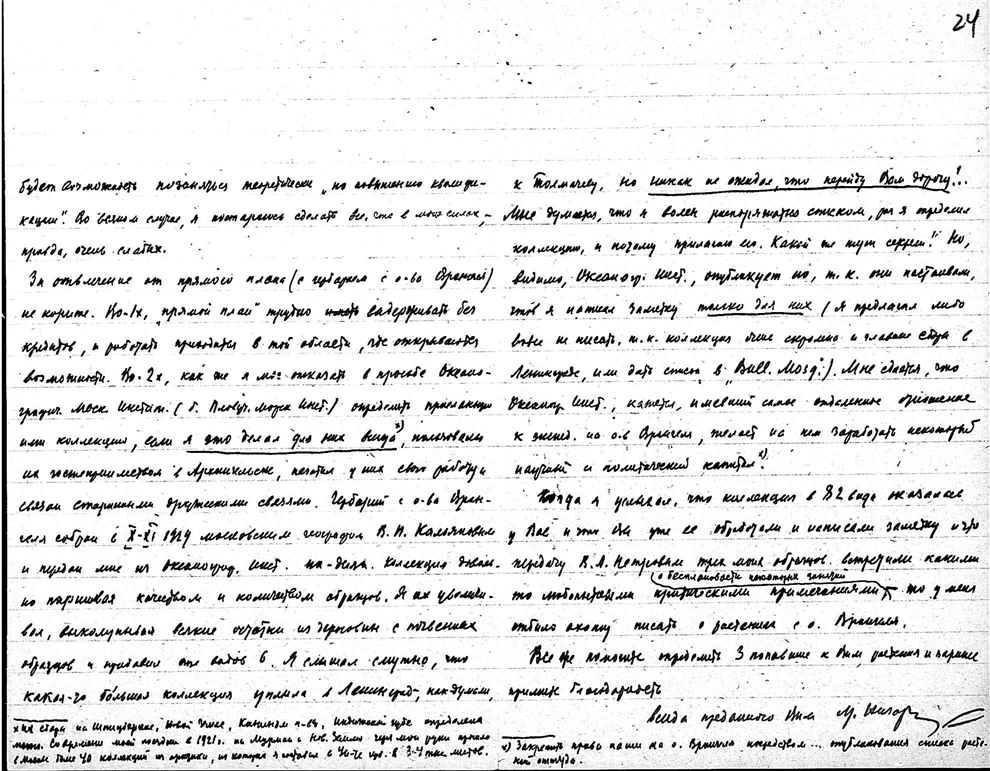 24
будет возможность позаняться теоретически „по повышению квалифи-
кации". Во всяком случае, я постараюсь сделать все, что в моих силах,
правда, очень слабых.
За отвлечение от прямого плана (с гербарием с о-ва Врангеля)
не корите. Во-1х, „прямой план" трудно выдерживать без
кредитов, и работать приходится в той области, где открываются
возможности. Во-2х, как же я мог отказать в просьбе Океано-
графич. Моск. Инстит. (б. Пловуч. Морск. Инст.) определить присланную
ими коллекцию, если я это делал для них всегда x), пользовался
их гостеприимством в Архангельске, начал у них свою работу и
связан старинными дружескими связями. Гербарий с о-ва Вран-
геля собран в X-XI 1929 московским географом
и передан мне из Океаногр. Инст. на-днях. Коллекция доволь-
но паршивая качеством и количеством образцов. Я их увеличи-
вал, выколупывая всякие остатки из дерновин с почвенных
образцов и прибавил еще видов 6. Я слышал смутно, что
какая-то большая коллекция уплыла в Ленинград, как думал,
x) Их сборы на Шпицбергене, Новой Земле, Канином п-ве, Индигской губе определены
мною. Со времени моей поездки в 1921 г. на Мурман и Нов. Землю через мои руки прошло
не менее 40 коллекций из Арктики, из которых я оставил в 3-4 пунктов.
к Толмачеву, но никак не ожидал, что перейду Вам дорогу!..
Мне думается, что я волен распоряжаться списком, раз я определил
коллекцию, и почему прилагаю его. Какой же тут секрет! Но,
видимо, Океаногр. Инст. опубликует его, т.к. они настаивали,
чтоб я написал заметку только для них (я предлагал либо
вовсе не писать, т.к. коллекция очень скромна и главные сборы в
Ленинграде, или дать список в „Bull. Мозд."). Мне сдается, что
Океаногр. Инст., кажется, имевший самое отдаленное отношение
к экспед. на о-в Врангеля, желает на нем заработать некоторый
научный и политический капитал x).
Когда я услыхал, что коллекция в 82 вида оказалась
у Вас и что Вы уже ее обработали и написали заметку и что
передачу В. А. Петровым трех моих образцов встретили какими-
то любопытными критическими примечаниями о бесплановости некоторых занятий, то у меня
отбило охоту писать о растениях с о. Врангеля.
Все же помогите определить 3 попавшие к Вам растения и заранее
примите благодарность
всегда преданного Вам
x) Закрепить права наши на о. Врангеля посредством... опубликования списка расте-
ний оттуда.